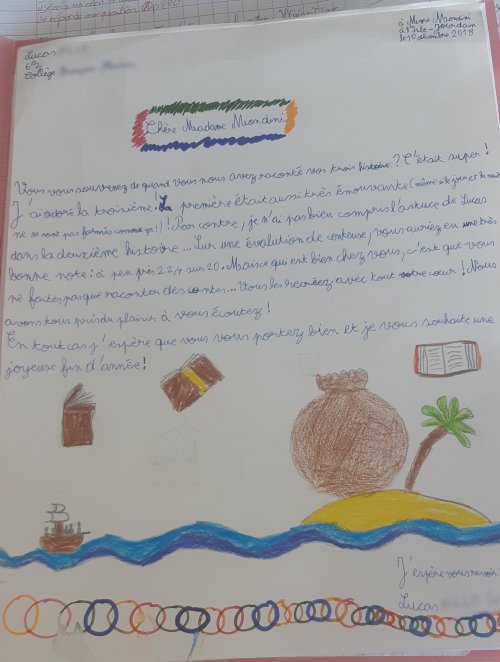 à Mme Mondini
à l'Isle-Jourdain
le 10 décembre 2018
Lucas
6°2
Collège
Chère Madame Mondini
Vous vous souvenez de quand vous nous avez raconté vos trois histoires ? C'était super !
J'ai adoré la troisième ! La première était aussi très émouvante (même si le jour et la nuit
ne se sont pas formés comme ça :) ! Par contre, je n'ai pas bien compris l'astuce de Lucas
dans la deuxième histoire... Sur une évaluation de conteuse, vous auriez eu une très
bonne note : à peu près 22,4 sur 20. Mais ce qui est bien chez vous, c'est que vous
ne faites pas que raconter des contes... Vous les recréez avec tout votre cœur ! Nous
avons tous pris du plaisir à vous écoutez !
En tout cas j'espère que vous vous portez bien et je vous souhaite une
joyeuse fin d'année !
J'espère vous revoir
Lucas